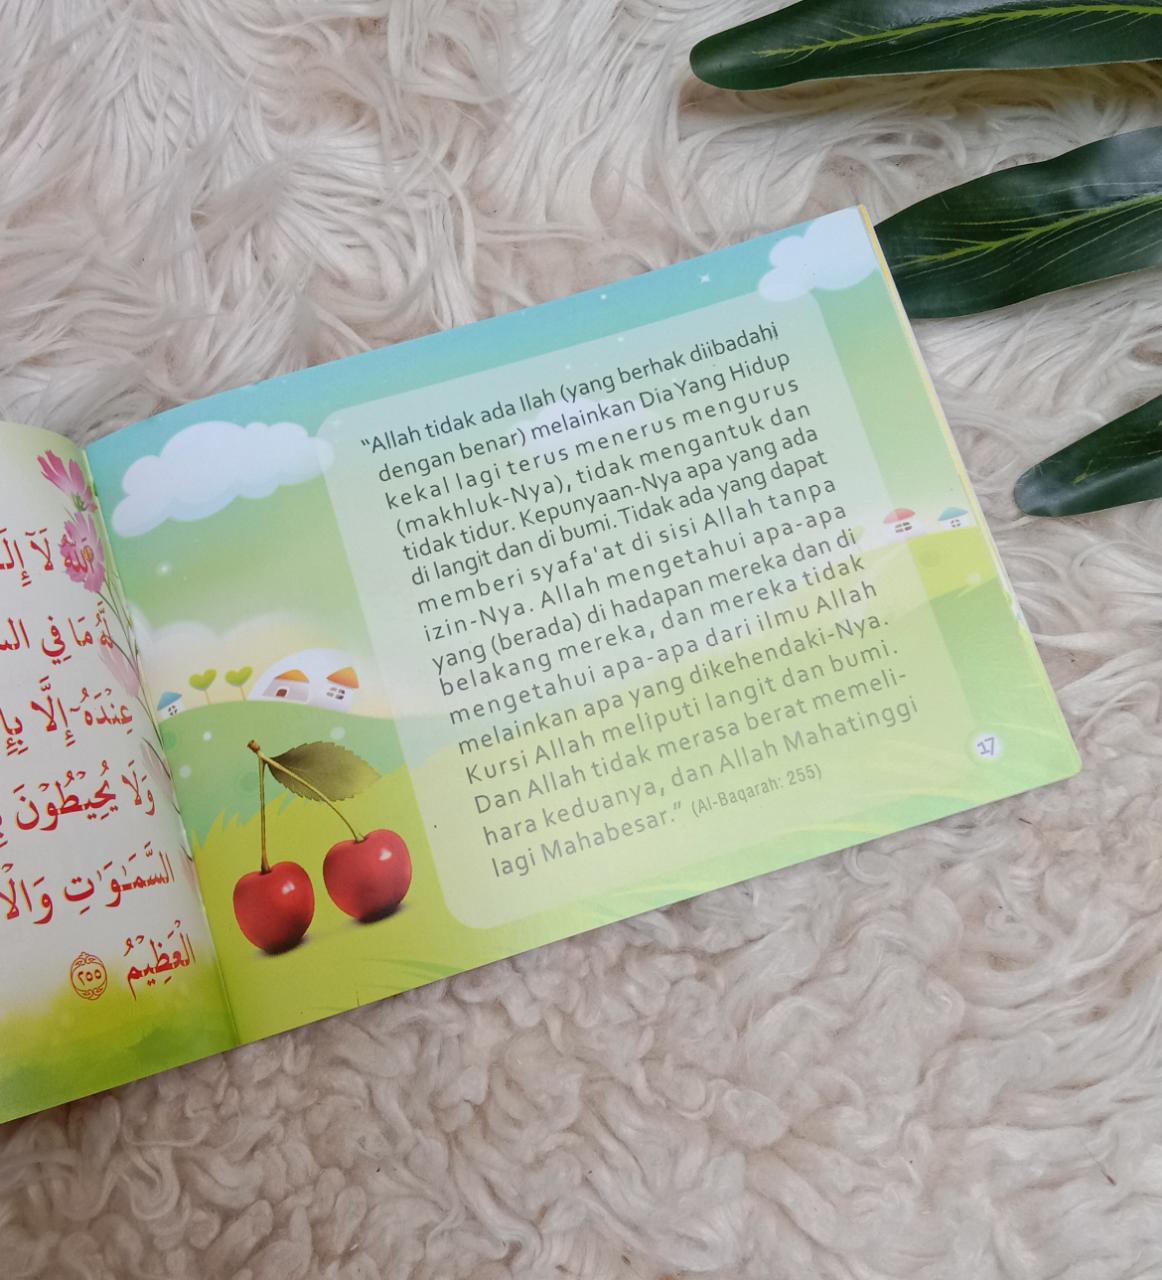 الله لَآ إِلَـ
لَّهُ مَا فِي السـ
عِنْدَهُٓ إِلَّا بِإِ
وَلَا يُحِيْطُوْنَ
السَّمٰوٰتِ وَالْاَ
الْعَظِيْمُ ٢٥٥
"Allah tidak ada Ilah (yang berhak diibadahi
dengan benar) melainkan Dia Yang Hidup
kekal lagi terus menerus mengurus
(makhluk-Nya), tidak mengantuk dan
tidak tidur. Kepunyaan-Nya apa yang ada
di langit dan di bumi. Tidak ada yang dapat
memberi syafa'at di sisi Allah tanpa
izin-Nya. Allah mengetahui apa-apa
yang (berada) di hadapan mereka dan di
belakang mereka, dan mereka tidak
mengetahui apa-apa dari ilmu Allah
melainkan apa yang dikehendaki-Nya.
Kursi Allah meliputi langit dan bumi.
Dan Allah tidak merasa berat memeli-
hara keduanya, dan Allah Mahatinggi
lagi Mahabesar." (Al-Baqarah: 255)
17